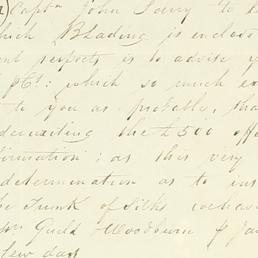 Captn John Lowry to
which Blading is enclos
ent respects is to advise y
Ct: which so much ex
to you as probable, tha
depositing the £500 offe
firmation; as this very
determination as to ins
he Trunk of Silks
Guild Woodburn & Ja
few days